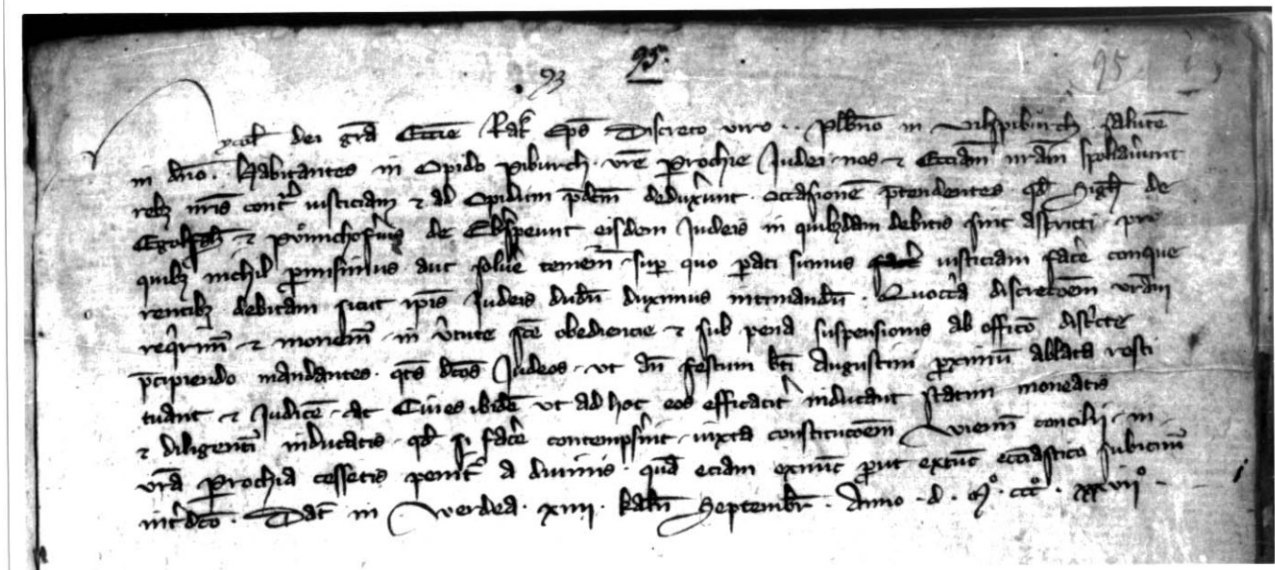 95.
93
95
ycol' dei gra Eccie Rat' Eps Discreto viro .. plbno in vilspiburch salute
in dno. Habitantes in Opido piburch. vre prochie Judei. nos et Ecciam nram spoliaverunt
rebz nris contra iusticiam et ad Opidum pdcm deduxerunt. Occasione ptendentes qd de
et de eisdem Judeis in quibzdam debitis sint astricti. pro
quibz nichil pmisimus aut solve tenem. sup quo pati sumus iusticiam face conque
rentibz debitam sicut ipis Judeis dudu duximus intimandu. Quocca discrecoem vram
reqrim et monem. in vtute sce obediencie et sub pena suspensionis ab officio districte
pcipiendo mandantes. qts dcos Judeos. ut an festum bti Augustini proximu ablata resti
tuant et Judice. ac Cives ibide ut ad hoc eos efficacit inducant statim moneatis
et diligent inducatis. qd si face contempsint. iuxta constitucoem vienn concilii. in
vra prochia cessetis penit a divinis. qua eciam exnuc prout extuc ecciastico subicim
int dco. Dat in Werdea. xiiii. kaln Septembr. Anno. d. Mo. ccco. xxviio